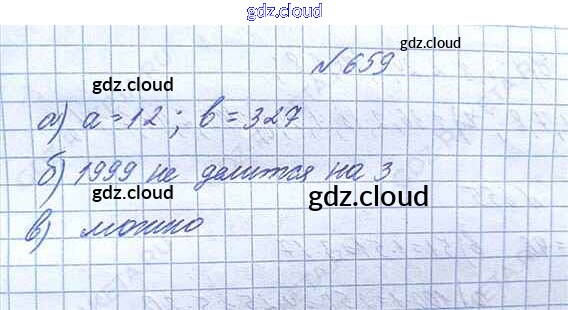 gdz.cloud
№ 659
gdz.cloud
gdz.cloud
а) a = 12 ; b = 327
б) 1999 не делится на 3
gdz.cloud
gdz.cloud
в) можно